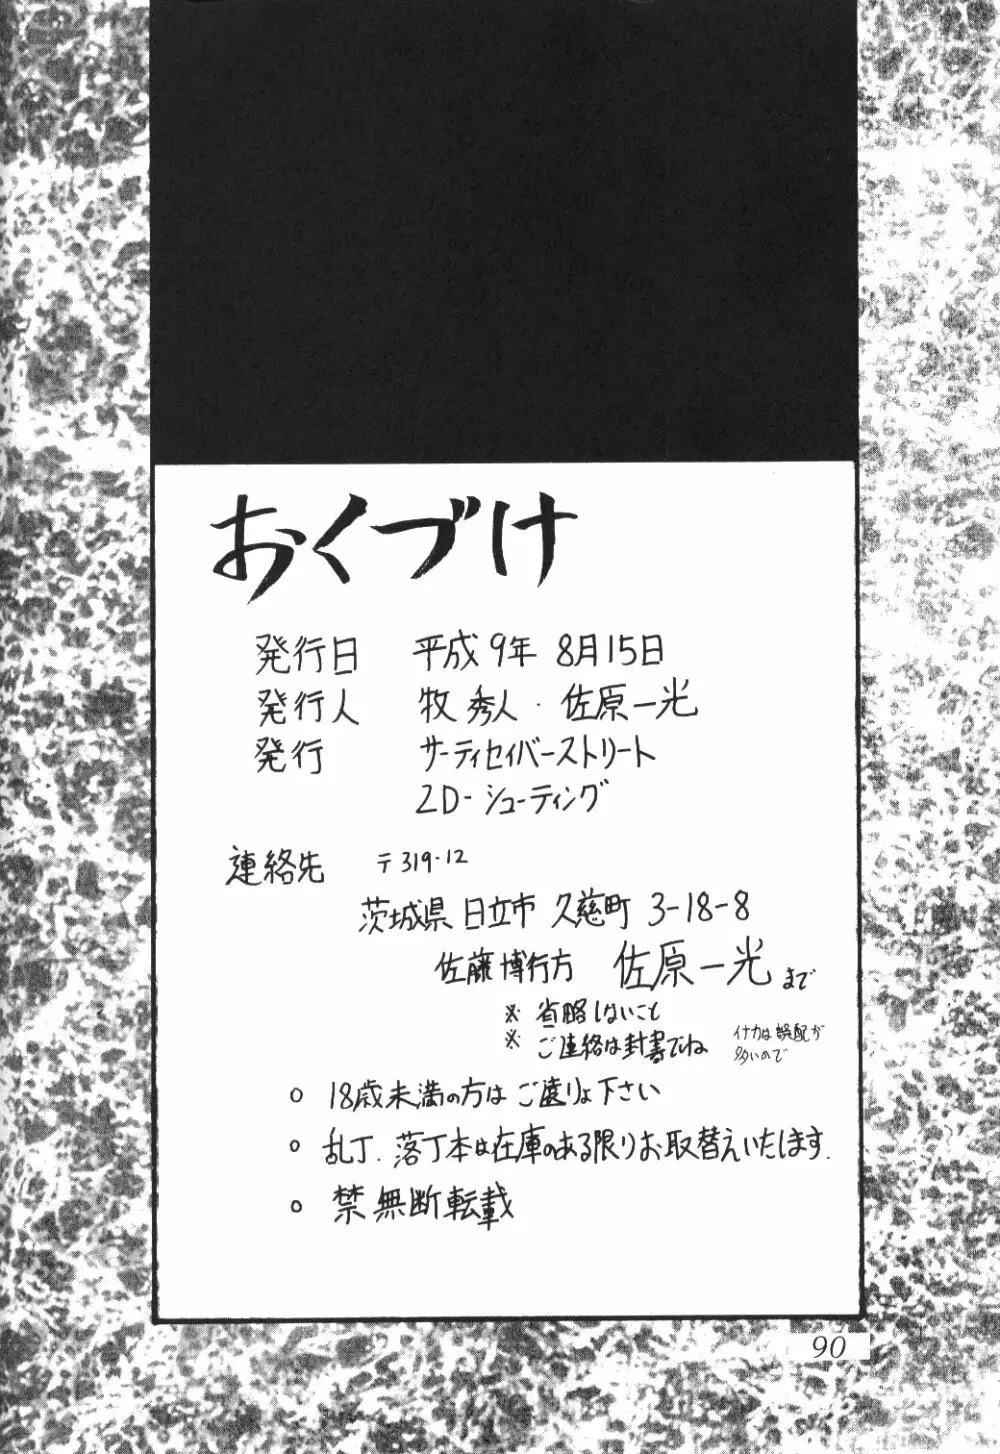 おくづけ
発行日 平成9年 8月15日
発行人 牧 秀人・佐原一光
発行 サーティセイバーストリート
2D-シューティング
連絡先 〒319-12
茨城県 日立市 久慈町 3-18-8
佐藤 博行方 佐原一光まで
※ 省略しないこと
※ ご連絡は封書でね イナカは誤配が
多いので
○ 18歳未満の方はご遠りょ下さい
○ 乱丁、落丁本は在庫のある限りお取替えいたします.
○ 禁無断転載
90